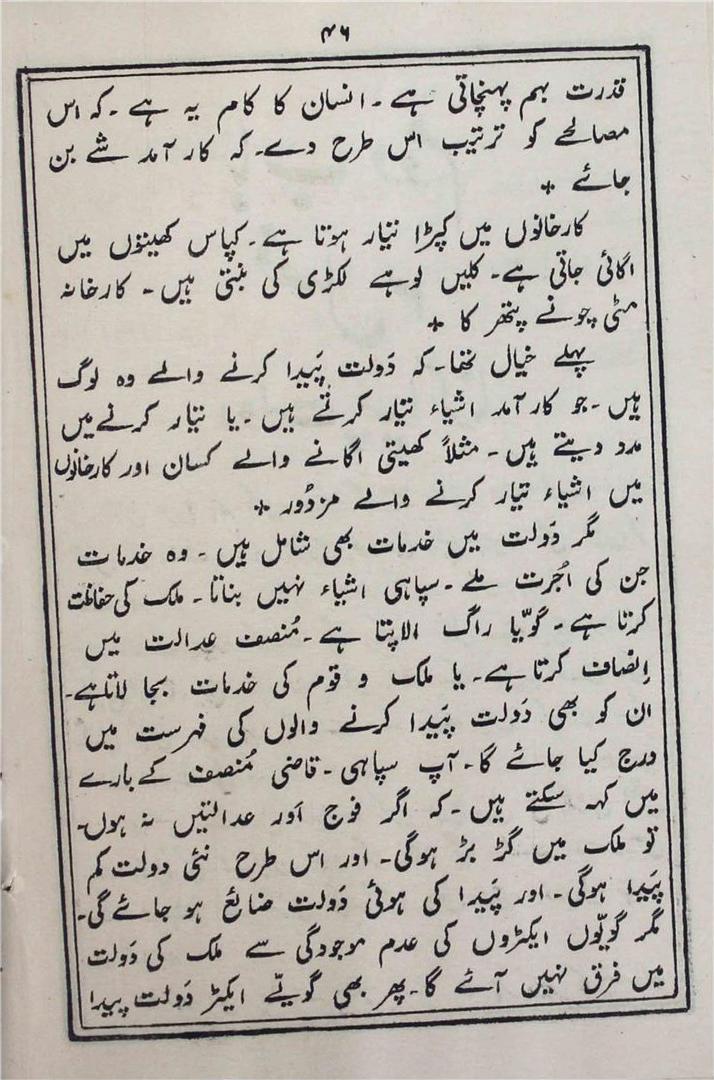 ۴۶
قدرت بہم پہنچاتی ہے۔ انسان کا کام یہ ہے ۔ کہ اس
مصالحے کو ترتیب اس طرح دے۔ کہ کار آمد شے بن
جائے *
کارخانوں میں کپڑا تیار ہوتا ہے۔ کپاس کھیتوں میں
اگائی جاتی ہے۔ کلیں لوہے لکڑی کی بنتی ہیں۔ کارخانہ
مٹی چونے پتھر کا *
پہلے خیال تھا۔ کہ دَولت پَیدا کرنے والے وہ لوگ
ہیں۔ جو کار آمد اشیاء تیار کرتے ہیں۔ یا تیار کرنے میں
مدد دیتے ہیں۔ مثلاً کھیتی اگانے والے کسان اور کارخانوں
میں اشیاء تیار کرنے والے مزدُور *
مگر دَولت میں خدمات بھی شامل ہیں۔ وہ خدمات
جن کی اُجرت ملے۔ سپاہی اشیاء نہیں بناتا۔ ملک کی حفاظت
کرتا ہے۔ گویّا راگ الاپتا ہے۔ مُنصف عدالت میں
اِنصاف کرتا ہے۔ یا ملک و قوم کی خدمات بجا لاتا ہے۔
ان کو بھی دَولت پَیدا کرنے والوں کی فہرست میں
درج کیا جائے گا۔ آپ سپاہی۔ قاضی مُنصف کے بارے
میں کہہ سکتے ہیں۔ کہ اگر فوج اَور عدالتیں نہ ہوں۔
تو ملک میں گڑ بڑ ہوگی۔ اور اس طرح نئی دولت کم
پَیدا ہوگی۔ اور پَیدا کی ہوئی دَولت ضائع ہو جائے گی۔
مگر گویّوں ایکٹروں کی عدم موجودگی سے ملک کی دَولت
میں فرق نہیں آئے گا۔ پھر بھی گویّے ایکٹر دَولت پیدا